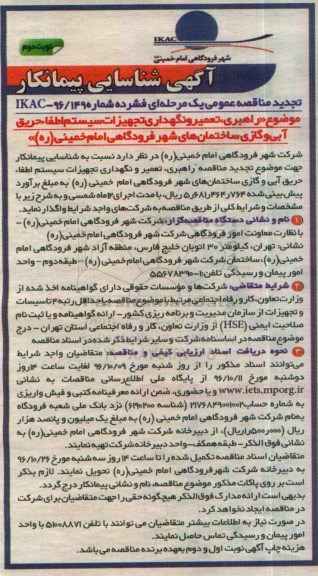 نوبت دوم
IKAC
شهر فرودگاهی امام خمینی(ره)
آگهی شناسایی پیمانکار
تجدید مناقصه عمومی یک مرحله‌ای فشرده شماره IKAC-۹۶/۱۴۹۵
موضوع «راهبری، تعمیر و نگهداری تجهیزات سیستم اطفاء حریق
آبی و گازی ساختمان‌های شهر فرودگاهی امام خمینی(ره)»
شرکت شهر فرودگاهی امام خمینی(ره) در نظر دارد نسبت به شناسایی پیمانکار
جهت موضوع تجدید مناقصه راهبری، تعمیر و نگهداری تجهیزات سیستم اطفاء
حریق آبی و گازی ساختمان‌های شهر فرودگاهی امام خمینی (ره) به مبلغ برآورد
پیش‌بینی شده ریال، با مدت اجرای ماه شمسی و به شرح زیر با
مشخصات و شرایط کلی از طریق مناقصه به شرکت‌های واجد شرایط واگذار نماید.
۱ نام و نشانی دستگاه مناقصه‌گزار: شرکت شهر فرودگاهی امام خمینی(ره) –
با نظارت معاونت امور فرودگاهی شرکت شهر فرودگاهی امام خمینی(ره)
نشانی: تهران، کیلومتر ۳۰ اتوبان خلیج فارس، منطقه آزاد شهر فرودگاهی امام
خمینی(ره)، ساختمان شرکت شهر فرودگاهی امام خمینی (ره) – طبقه دوم – واحد
امور پیمان و رسیدگی تلفن:
۲ شرایط متقاضی: شرکت‌ها و مؤسسات حقوقی دارای گواهینامه اخذ شده از
وزارت تعاون، کار و رفاه اجتماعی مرتبط با موضوع مناقصه با حداقل رتبه تاسیسات
و تجهیزات از سازمان مدیریت و برنامه ریزی کشور – ارائه گواهینامه و یا ثبت نام
صلاحیت ایمنی (HSE) از وزارت تعاون، کار و رفاه اجتماعی استان تهران – درج
موضوع مناقصه در اساسنامه شرکت و سایر شرایط ذکر شده در اسناد مناقصه
۳ نحوه دریافت اسناد ارزیابی کیفی و مناقصه: متقاضیان واجد شرایط
می‌توانند اسناد مذکور را از روز شنبه مورخ ۹۶/۱۰/۰۹ لغایت ساعت ۱۴ روز
دوشنبه مورخ ۹۶/۱۰/۱۱ از پایگاه ملی اطلاع‌رسانی مناقصات به نشانی
www.iets.mporg.ir و یا حضوری، ضمن ارائه معرفینامه کتبی و فیش واریزی
به شماره حساب (شناسه ) نزد بانک ملی شعبه فرودگاه
بنام شرکت شهر فرودگاهی امام خمینی (ره) به مبلغ یک میلیون و پانصد هزار
ریال از دبیرخانه شرکت شهر فرودگاهی امام خمینی (ره) به
نشانی فوق الذکر – طبقه همکف – واحد دبیرخانه شرکت تهیه نمایند.
متقاضیان اسناد مناقصه تکمیل شده را تا ساعت ۱۴ روز سه شنبه مورخ ۹۶/۱۰/۲۶
به دبیرخانه شرکت شهر فرودگاهی امام خمینی(ره) تحویل نمایند. لازم بذکر
است بر روی پاکات مذکور موضوع مناقصه، نام و نشانی پیمانکار درج گردد.
بدیهی است ارائه مدارک فوق الذکر هیچگونه حقی را جهت متقاضیان برای شرکت
در مناقصه ایجاد نخواهد کرد.
در صورت نیاز به اطلاعات بیشتر متقاضیان می توانند با تلفن ۵۱۰۰۸۸۷۱ با واحد
امور پیمان و رسیدگی تماس حاصل نمایند.
هزینه چاپ آگهی نوبت اول و دوم بعهده برنده مناقصه می‌باشد.